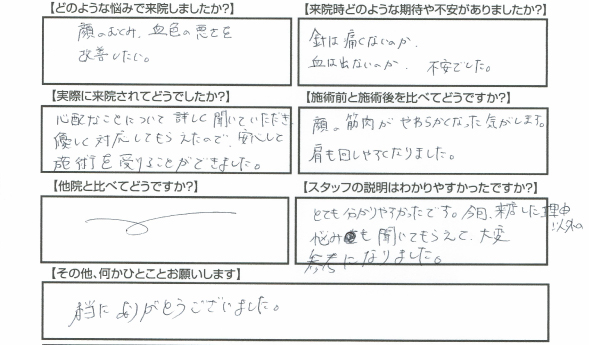 【どのような悩みで来院しましたか?】
顔のむくみ、血色の悪さを
改善したい。
【来院時どのような期待や不安がありましたか?】
針は痛くないのか、
血は出ないのか、不安でした。
【実際に来院されてどうでしたか?】
心配なことについて詳しく聞いていただき
優しく対応してもらえたので、安心して
施術を受けることができました。
【施術前と施術後を比べてどうですか?】
顔の筋肉がやわらかくなった気がします。
肩も回しやすくなりました。
【他院と比べてどうですか?】
【スタッフの説明はわかりやすかったですか?】
とても分かりやすかったです。今回、来店した理由
以外の
悩みも聞いてもらえて、大変
参考になりました。
【その他、何かひとことお願いします】
本当にありがとうございました。